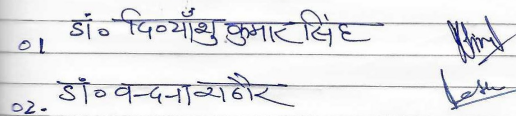 01 डॉ० दिव्याँशु कुमार सिंह
02. डॉ० वन्दना राठौर